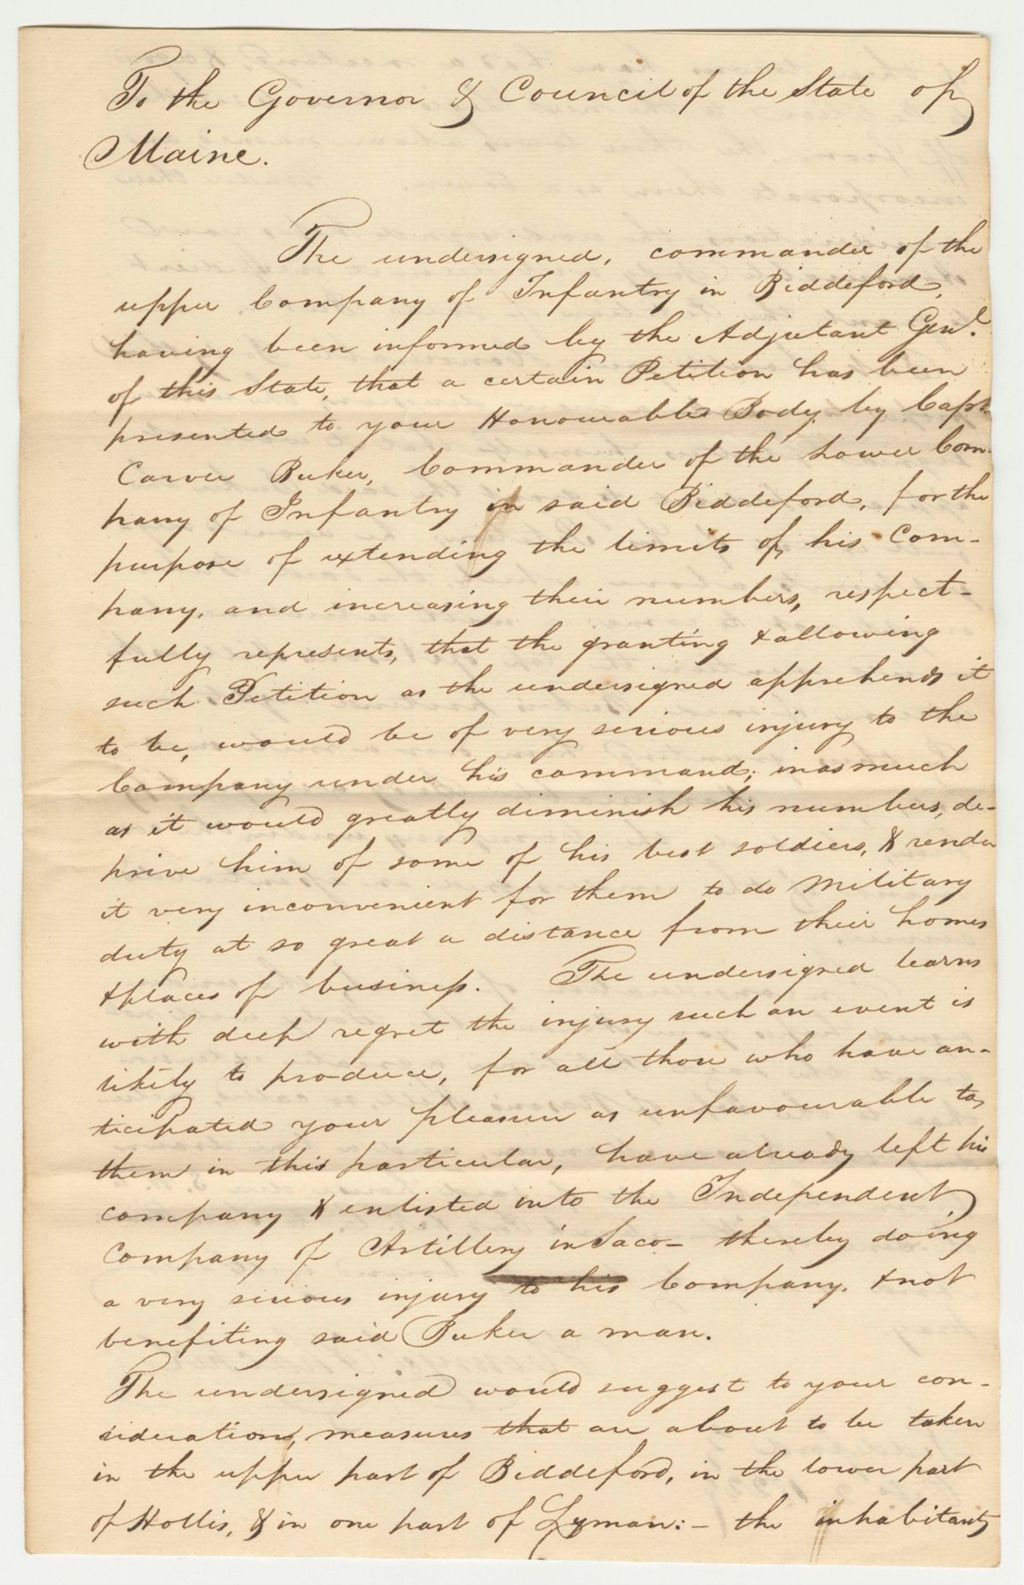 To the Governor & Council of the State of
Maine.
The undersigned, commander of the
upper Company of Infantry in Biddeford,
having been informed by the Adjutant Genl.
of this State, that a certain Petition has been
presented to your Honourable Body by Capt.
Carver Buker, Commander of the Lower Com-
pany of Infantry in said Biddeford, for the
purpose of extending the limits of his Com-
pany, and increasing their numbers, respect-
fully represents, that the granting & allowing
such Petition as the undersigned apprehends it
to be, would be of very serious injury to the
Company under his command; inasmuch
as it would greatly diminish his numbers, de-
prive him of some of his best soldiers, & render
it very inconvenient for them to do Military
duty at so great a distance from their homes
& places of business. The undersigned learns
with deep regret the injury such an event is
likely to produce, for all those who have an-
ticipated your pleasure as unfavourable to
them in this particular, have already left his
company & enlisted into the Independent
Company of Artillery in Saco — thereby doing
a very serious injury to his Company. & not
benefiting said Buker a man.
The undersigned would suggest to your con-
siderations, measures that are about to be taken
in the upper part of Biddeford, in the lower part
of Hollis, & in one part of Lyman: — the inhabitants